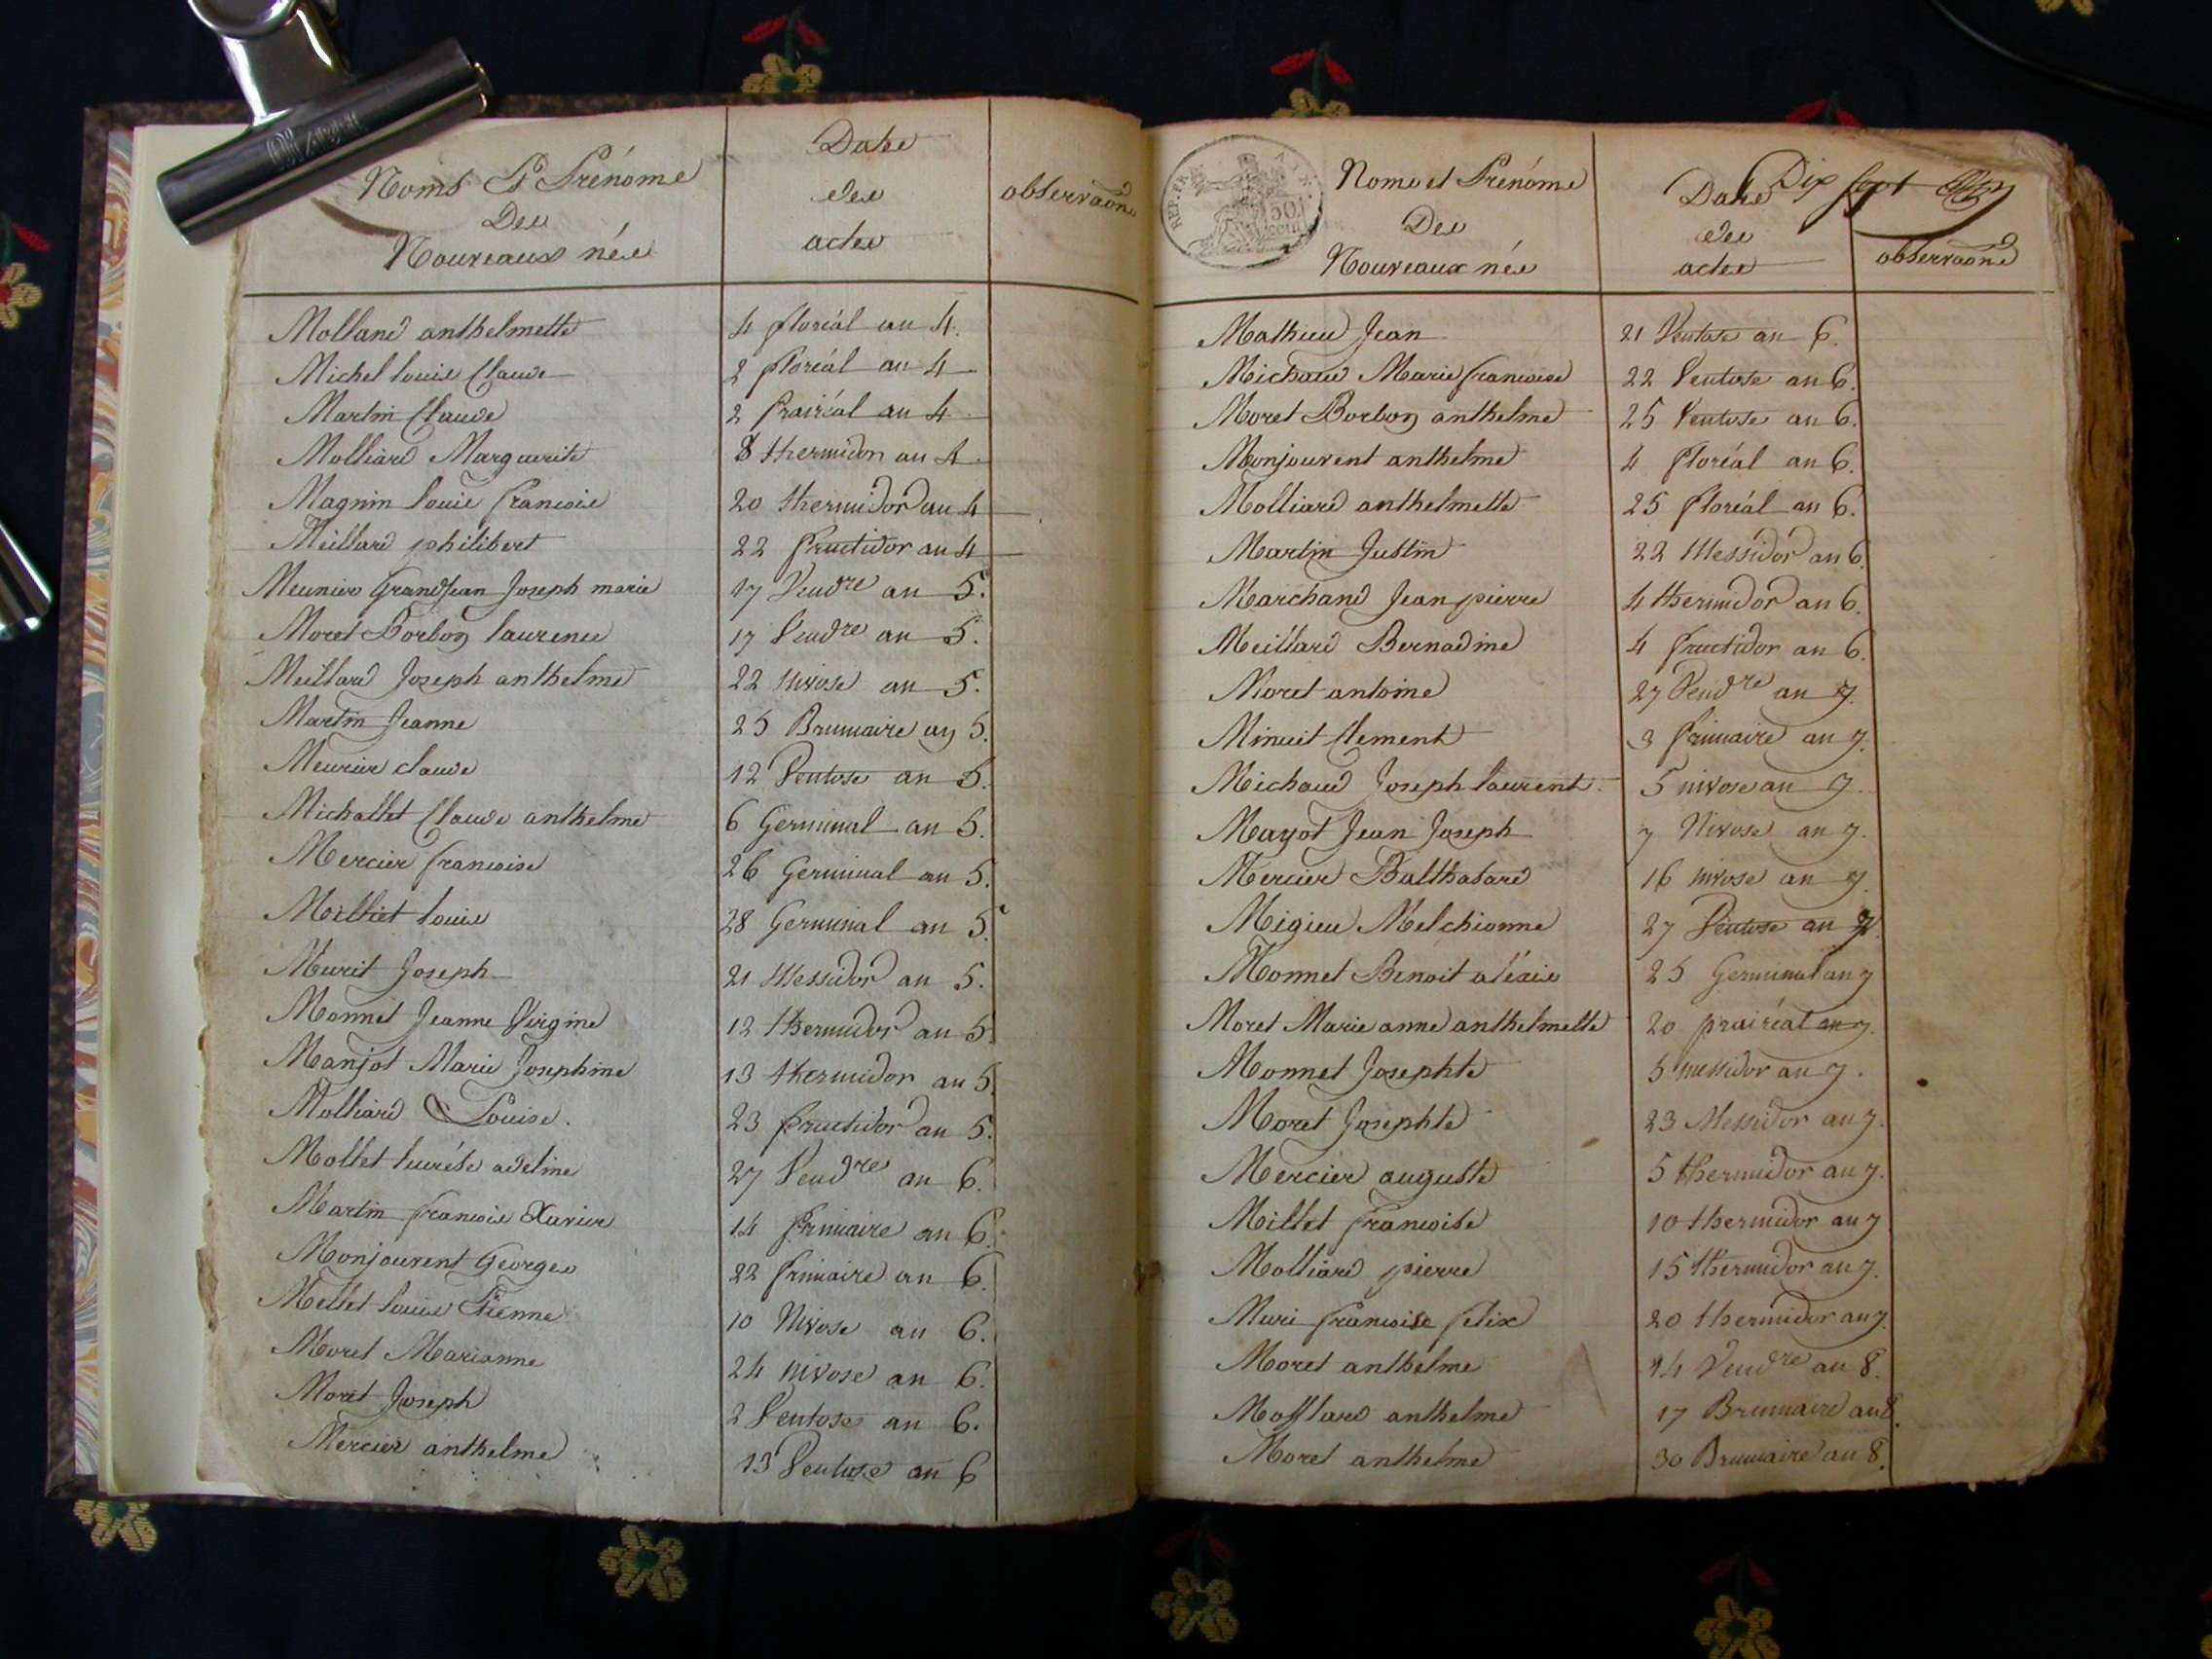 Noms Et Prénoms
Des
Nouveaux nés
Date
des
actes
observaons
Molland anthelmette 4 floréal an 4.
Michel louis Claude 2 floréal an 4
Martin Claude 2 prairéal an 4
Molliard Marguerite 8 thermidor an 4
Magnin louis francois 20 thermidor an 4
Meillard philibert 22 fructidor an 4
Meunier Grandjean Joseph marie 17 Vendre an 5.
Moret Borbon laurence 17 Vendre an 5.
Meillard Joseph anthelme 22 nivose an 5.
Martin Jeanne 25 Brumaire an 5.
Meurier claude 12 Ventose an 5.
Michallet Claude anthelme 6 Germinal an 5.
Mercier francoise 26 Germinal an 5.
Milliet louis 28 Germinal an 5.
Murit Joseph 21 Messidor an 5.
Monnet Jeanne Virgine 12 thermidor an 5
Manjot Marie Josephine 13 thermidor an 5
Molliard Louise. 23 fructidor an 5.
Mollet lucréte adeline 27 Vendre an 6.
Martin francois Xavier 14 frimaire an 6.
Monjouvent Georges 22 frimaire an 6.
Mellet louis Etienne 10 Nivose an 6.
Moret Marianne 24 nivose an 6.
Moret Joseph 2 Ventose an 6.
Mercier anthelme 13 Ventose an 6
REP. FRA.
50
cent
Noms et Prénoms
Des
Nouveaux nés
Date
des
actes
Dix sept
observaons
Mathieu Jean 21 Ventose an 6.
Michaud Marie francoise 22 Ventose an 6.
Moret Borbon anthelme 25 Ventose an 6.
Monjouvent anthelme 4 floréal an 6.
Molliard anthelmette 25 floréal an 6.
Martin Justin 22 Messidor an 6.
Marchand Jean pierre 4 thermidor an 6.
Meillard Bernadine 4 fructidor an 6.
Moret antoine 27 Vendre an 7.
Minuit Clement 3 frimaire an 7.
Michaud Joseph laurent. 5 nivose an 7.
Mayot Jean Joseph 7 Nivose an 7.
Mercier Balthasard 16 nivose an 7.
Migieu Melchionne 27 Ventose an 7.
Monnet Benoit aléxis 25 Germinal an 7
Moret Marie anne anthelmette 20 prairéal an 7.
Monnet Josephte 5 messidor an 7.
Moret Josephte 23 Messidor an 7.
Mercier auguste 5 thermidor an 7.
Millet francoise 10 thermidor an 7
Molliard pierre 15 thermidor an 7.
Muri francoise felix 20 thermidor an 7.
Moret anthelme 14 Vendre an 8.
anthelme 17 Brumaire an 8.
Moret anthelme 30 Brumaire an 8.